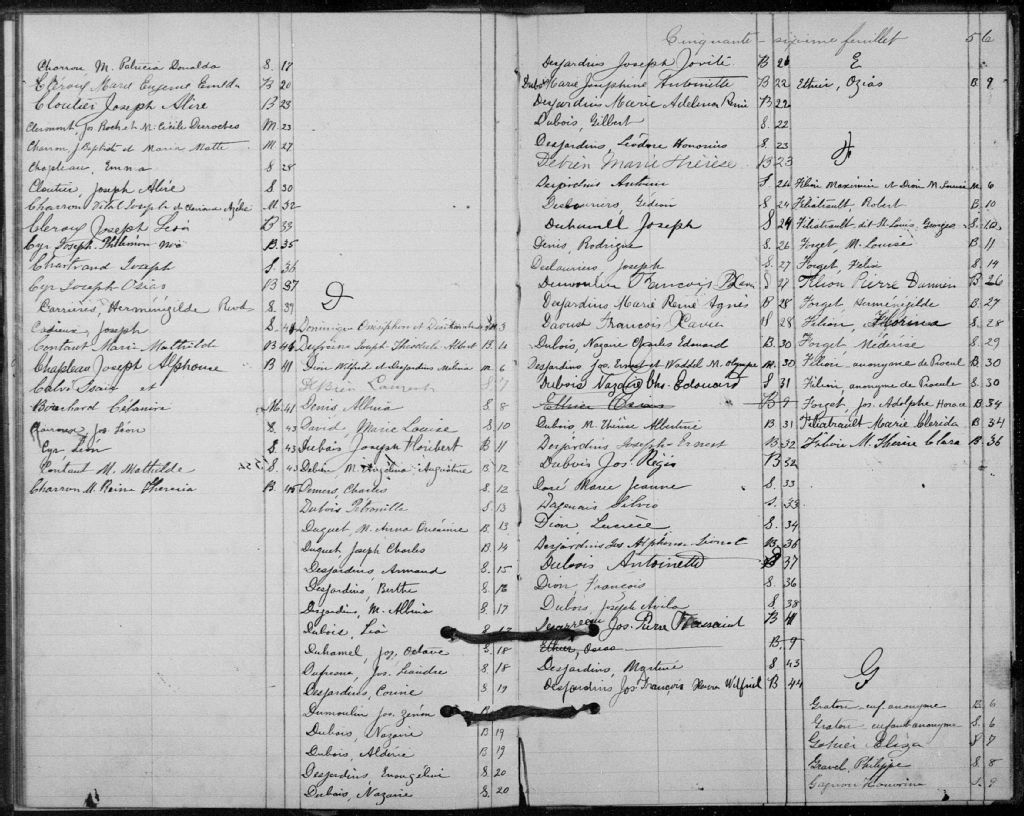 Charron M. Patricia Donalda S. 17
Cléroux Marie Eugénie B 20
Cloutier Joseph Alire B 23
Clermont, Jos. Roch et M. Cécile Desroches M. 23
Charron, J. Baptiste et Maria Matte M. 27
Chapleau, Emma S. 28
Cloutier, Joseph Alire S. 30
Charron Vital Joseph et M. 32
Cléroux Joseph Léon B 33
Cyr Joseph Philémon Noé B. 35
Chartrand Joseph S. 36
Cyr Joseph Osias B 37
Carrières, Herménégilde S. 39
Cadieux, Joseph S. 40
Contant Marie Mathilde B
Chapleau Joseph Alphonse B 41
Calvé Isaïe et
Bouchard Célanire M. 41
Jos. Léon S. 43
Cyr Léon S. 43
Contant M. Mathilde S. 43
Charron M. Reine Theresia B. 45
D
Dominique Onésiphon et M 3
Dufresne Joseph Théodule Albert B. 6
Dion Wilfrid et Desjardins Melina M. 6
Laurent 7
Denis Albina S. 8
David, Marie Louise S. 10
Dubois Joseph Floribert B 11
M. Angelina Augustine B 12
Demers, Charles S. 12
Dubois Pétronille S. 13
Duquet M. Anna B. 13
Duquet Joseph Charles B. 14
Desjardins, Armand S. 15
Desjardins, Berthe S. 16
Desjardins, M. Albina S. 17
Dubois, Léo S. 17
Duhamel, Jos. Octave S. 18
Dufresne, Jos. Léandre S. 18
Desjardins, S 19
Dumoulin Jos. Zénon B
Dubois, Nazaire B 19
Dubois, Aldéric B 19
Desjardins, Evangéline S. 20
Dubois, Nazaire S. 20
Cinquante-sixième feuillet 56
Desjardins Joseph Jovité B 21
Dubois Marie Joséphine Antoinette B 22
Desjardins Marie Adelina René B 22
Dubois, Gilbert S. 22
Desjardins, Léodore Honorius S. 23
Debien Marie Thérèse B 23
Desjardins Arthur S. 24
Deslauriers, Gédéon S 24
Duhamel Joseph S 24
Denis, Rodrigue S. 26
Deslauriers, Joseph S. 27
Demoulin François S 27
Desjardins Marie René Agnès B 28
Daoust François Xavier S 28
Dubois, Nazaire Charles Edouard B. 30
Desjardins Jos. Ernest et Waddel M. Olympe M. 30
Dubois Nazaire Chs. Edouard S. 31
Ethier Osias B 9
Dubois M. Thérèse Albertine B 31
Desjardins Joseph-Ernest B 32
Dubois Jos. Régis B 32
Doré Marie Jeanne S. 33
Dagenais Silvio S. 33
Dion Lucrèce S. 34
Desjardins Jos Alphonse Lionel B. 36
Dubois Antoinette 37
Dion, François S. 36
Dubois, Joseph Avila S. 38
Jos. Pierre Toussaint B 41
Ethier, Osias B. 9
Desjardins, Martine S. 43
Desjardins Jos François Wilfrid B 44
E
Ethier, Ozias B. 9
F
Filion Maximien et Dion M. Louise M. 6
Filiatrault, Robert B. 10
Filiatrault dit St. Louis, Georges S. 10
Forget, M. Louise B 11
Forget, Felix S. 14
Filion Pierre Damien B 26
Forget, Herménégilde B. 27
Filion, Florina S. 28
Forget, Médérise S. 29
Filion anonyme de Pascal B. 30
Filion anonyme de Pascal S. 30
Forget, Jos. Adolphe Horace B 34
Filiatrault Marie Clerida B. 34
Filion M. Thérèse Clara B. 36
G
Graton enf. anonyme B. 6
Graton enfant anonyme S. 6
Eliza S 7
Gravel, Philippe S. 8
Gagnon Honorine S. 9